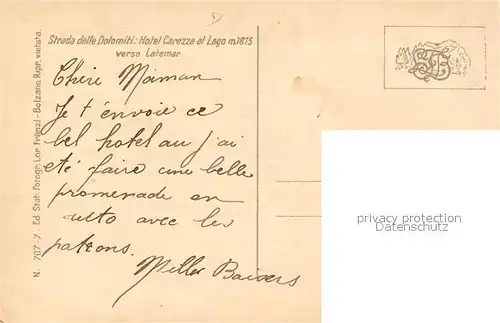 Strada delle Dolomiti: Hotel Carezza al Lago m.1675
verso Latemar
Chère Maman
Je t'envoie ce
bel hotel au j'ai
eté faire une belle
promenade en
auto avec les
patrons.
Milles Baisers
N. 707-7. Ed Stab. Fotogr. Lor. Fränzl - Bolzano. Ripr. vietata.
privacy protection
copyright oldthing.de